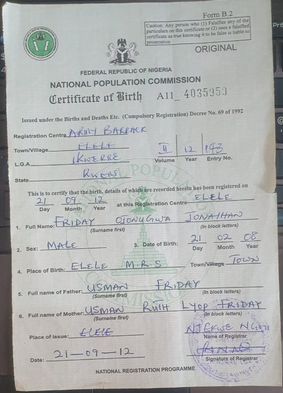 Form B.2
Caution: Any person who (1) Falsifies any of the
particulars on this certificate or (2) uses a falsified
certificate as true knowing it to be false is liable to
prosecution.
ORIGINAL
FEDERAL REPUBLIC OF NIGERIA
NATIONAL POPULATION COMMISSION
Certificate of Birth A11_ 4035953
Issued under the Births and Deaths Etc. (Compulsory Registration) Decree No. 69 of 1992
Registration Centre ARMY BARRACK
Town/Village ELELE II 12 193
L.G.A IKWERRE Volume Year Entry No.
State RIVERS
This is to certify that the birth, details of which are recorded herein has been registered on
21 09 12 at this Registration Centre ELELE
Day Month Year
1. Full Name: FRIDAY JONATHAN
(Surname first) (in block letters)
2. Sex: MALE 3. Date of Birth: 21 02 08
Day Month Year
4. Place of Birth: ELELE M.R.S Town/Village TOWN
5. Full name of Father: USMAN FRIDAY
(Surname first) (In block letters)
6. Full name of Mother: USMAN RUTH LYOP FRIDAY
(Surname first) (In block letters)
Place of issue: ELELE
Name of Registrar
Date: 21-09-12
Signature of Registrar
NATIONAL REGISTRATION PROGRAMME